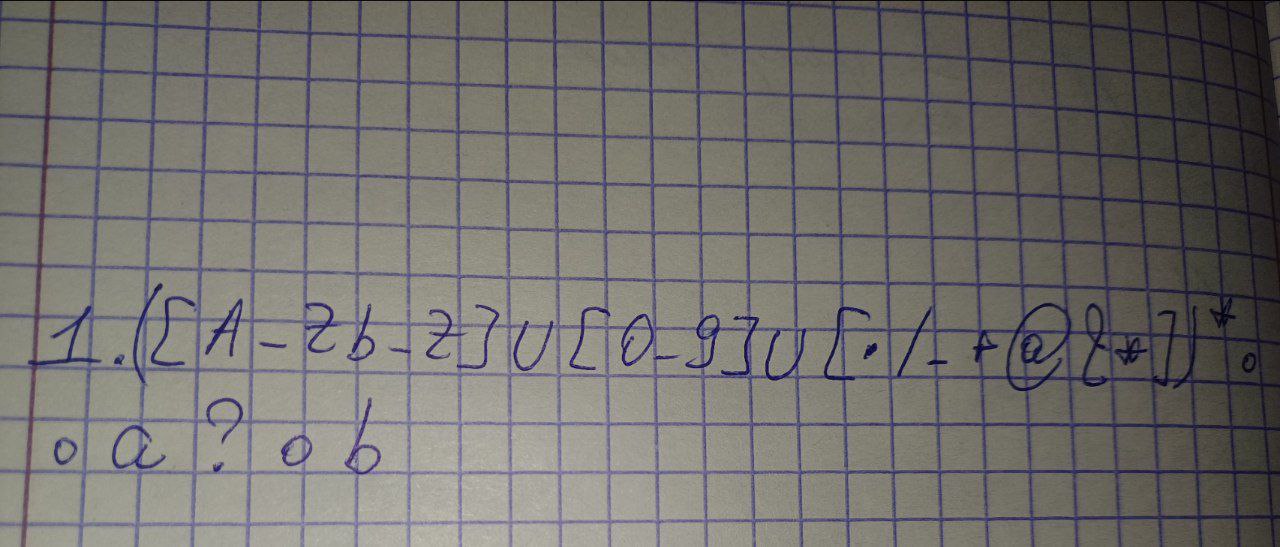 1. ([A-Zb-z]∪[0-9]∪[./-+@&*])* ∘
∘ a ? ∘ b